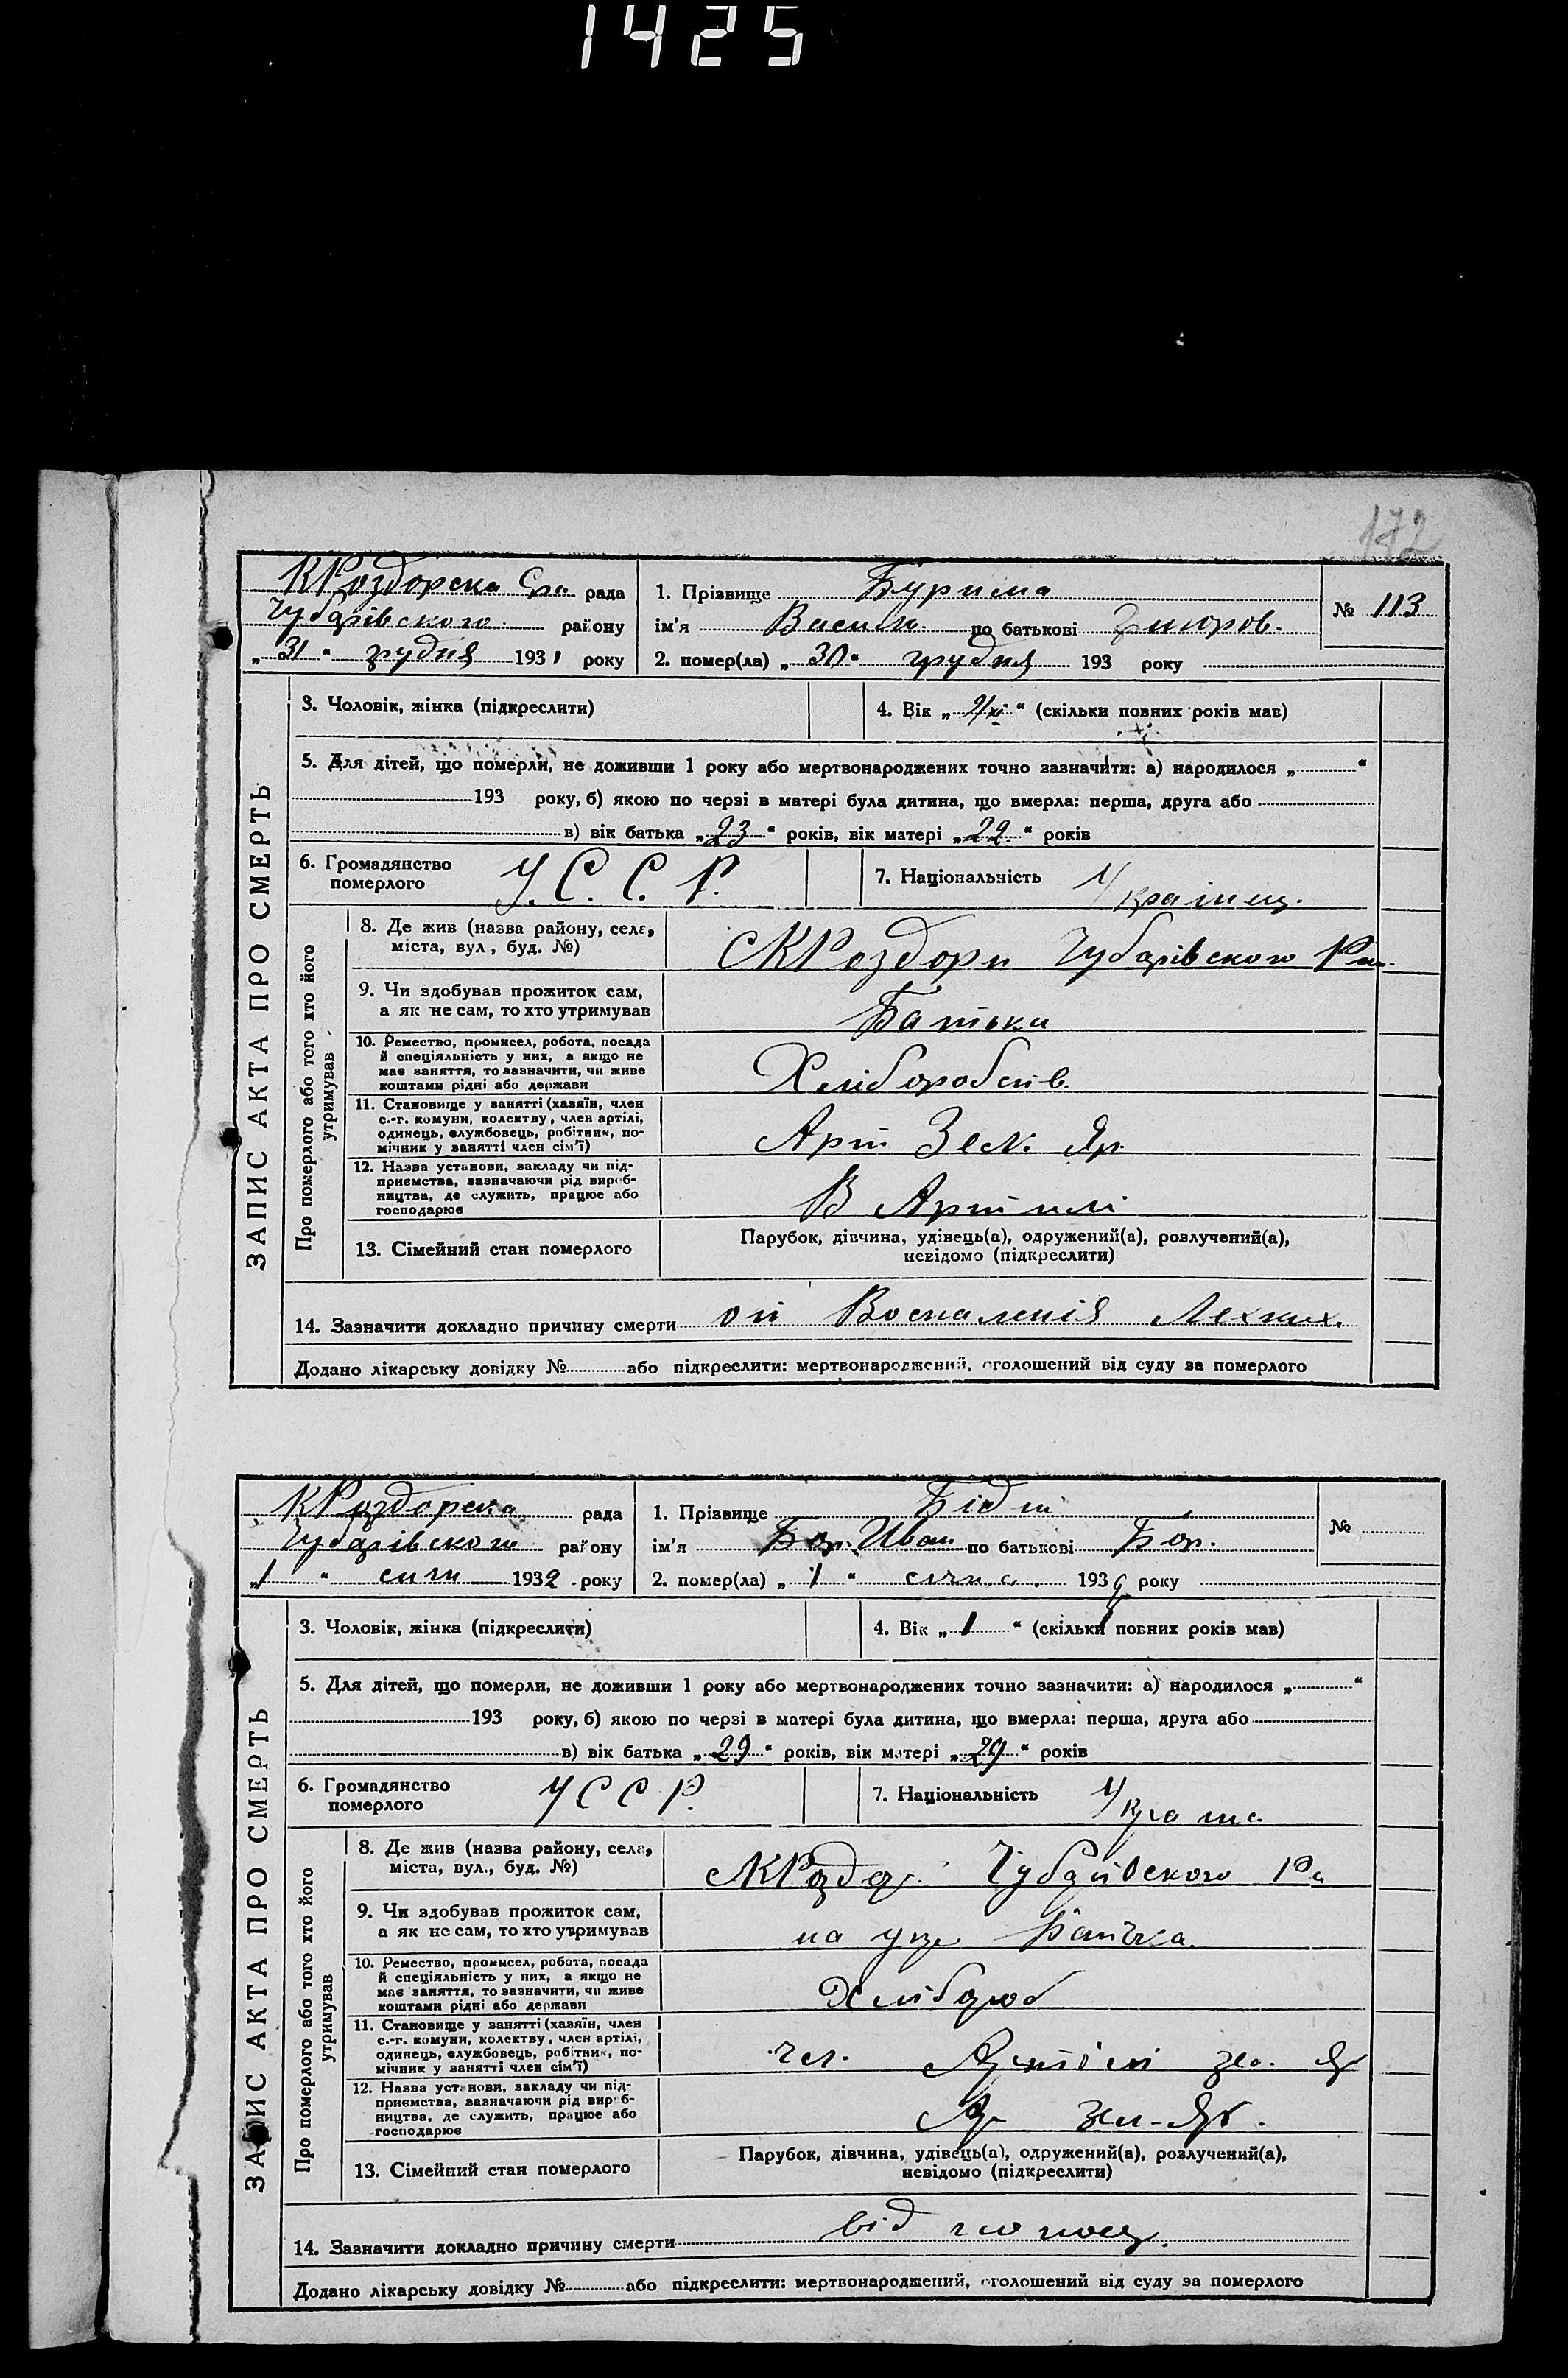 1425
172
КРоздорска С/ра рада
Чубарівского району
„ 31 “ грудня 1931 року
1. Прізвище Бурима
ім'я Василь по батькові
2. помер(ла) „ 30 “ грудня 193 року
№ 113
ЗАПИС АКТА ПРО СМЕРТЬ
3. Чоловік, жінка (підкреслити)
4. Вік „ “ (скільки повних років мав)
5. Для дітей, що померли, не доживши 1 року або мертвонароджених точно зазначити: а) народилося „ “
193 року, б) якою по черзі в матері була дитина, що вмерла: перша, друга або
в) вік батька „ 23 “ років, вік матері „ 22 “ років
6. Громадянство
померлого
У. С. С. Р.
7. Національність Українец.
Про померлого або того хто його
утримував
8. Де жив (назва району, села,
міста, вул., буд. №)
С КРоздори Чубарівского Р
9. Чи здобував прожиток сам,
а як не сам, то хто утримував
Батьки
10. Ремество, промисел, робота, посада
й спеціяльність у них, а якщо не
має заняття, то зазначити, чи живе
коштами рідні або держави
Хліборобств.
11. Становище у занятті (хазяїн, член
с.-г. комуни, колективу, член артілі,
одинець, службовець, робітник, по-
мічник у занятті член сім'ї)
Арт Зел. Яр.
12. Назва установи, закладу чи під-
приємства, зазначаючи рід вироб-
ництва, де служить, працює або
господарює
В Артилі
13. Сімейний стан померлого
Парубок, дівчина, удівець(а), одружений(а), розлучений(а),
невідомо (підкреслити)
14. Зазначити докладно причину смерти от Воспаления Лехких.
Додано лікарську довідку № або підкреслити: мертвонароджений, оголошений від суду за померлого
КРоздорска рада
Чубарівского району
„ 1 “ 1932 року
1. Прізвище
ім'я Бор. Иван по батькові Бор.
2. помер(ла) „ 1 “ січня 193 року
№
ЗАПИС АКТА ПРО СМЕРТЬ
3. Чоловік, жінка (підкреслити)
4. Вік „ 1 “ (скільки повних років мав)
5. Для дітей, що померли, не доживши 1 року або мертвонароджених точно зазначити: а) народилося „ “
193 року, б) якою по черзі в матері була дитина, що вмерла: перша, друга або
в) вік батька „ 29 “ років, вік матері „ 29 “ років
6. Громадянство
померлого
У С С Р.
7. Національність
Про померлого або того хто його
утримував
8. Де жив (назва району, села,
міста, вул., буд. №)
с КРоздор. Чубарівского Р
9. Чи здобував прожиток сам,
а як не сам, то хто утримував
на Батька.
10. Ремество, промисел, робота, посада
й спеціяльність у них, а якщо не
має заняття, то зазначити, чи живе
коштами рідні або держави
Хлібороб
11. Становище у занятті (хазяїн, член
с.-г. комуни, колективу, член артілі,
одинець, службовець, робітник, по-
мічник у занятті член сім'ї)
чл. Артілі зел. Яр
12. Назва установи, закладу чи під-
приємства, зазначаючи рід вироб-
ництва, де служить, працює або
господарює
Ар зел-Яр.
13. Сімейний стан померлого
Парубок, дівчина, удівець(а), одружений(а), розлучений(а),
невідомо (підкреслити)
14. Зазначити докладно причину смерти від
Додано лікарську довідку № або підкреслити: мертвонароджений, оголошений від суду за померлого